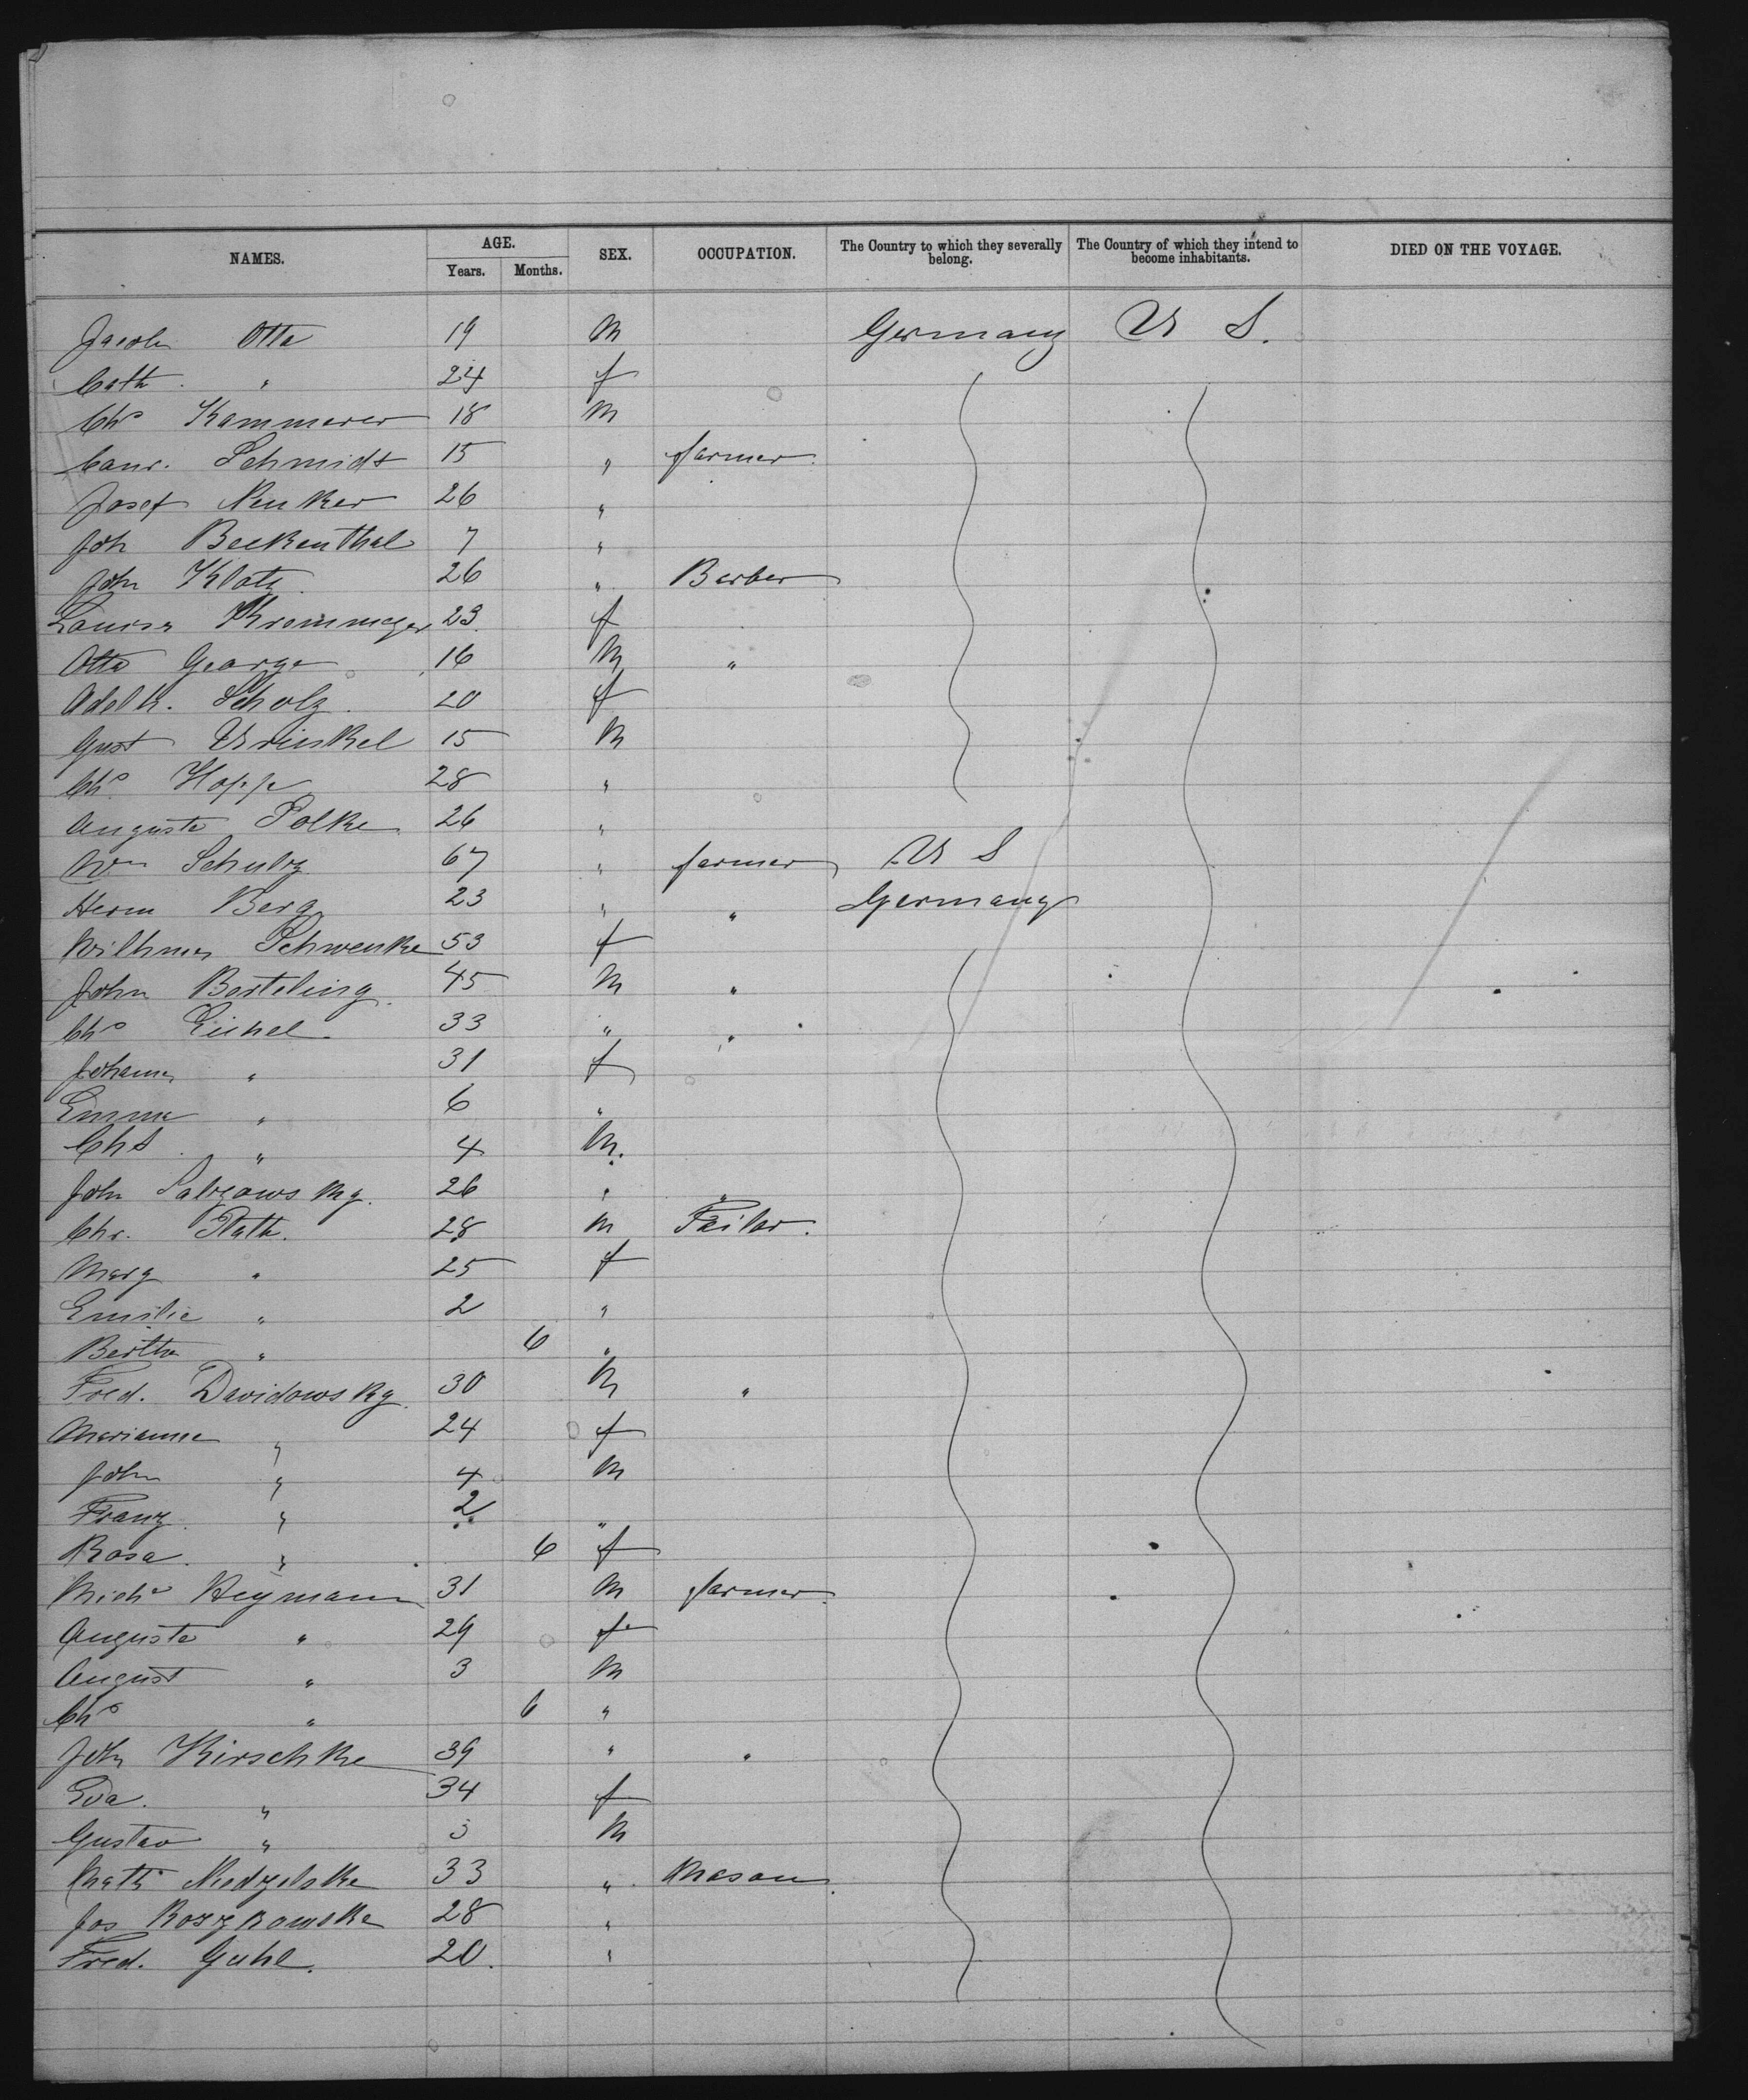 NAMES. AGE. SEX. OCCUPATION. The Country to which they severally belong. The Country of which they intend to become inhabitants. DIED ON THE VOYAGE.
Years. Months.
Jacob Otto 19 M Germany U S.
Cath. " 24 f
Chs Kammerer 18 M
Conr. Schmidt 15 " farmer.
Josef Neuker 26 "
Joh Beckenthal 7 "
John Klotz. 26 " Barber
Louisa Krommeyer 23 f
Otto George 16 M "
Adelh. Scholz. 20 f
Gust 15 M
Chs Hoppe 28 "
Auguste Polke 26 "
Wm Schulz 67 " farmer U S
Herm Berg 23 " " Germany
Wilhma Schwenke 53 f
John Berteling. 45 M "
Chs Eichel. 33 " "
Johanna " 31 f
Emma " 6 "
Chs. " 4 M.
John 26 " "
Chr. Plath. 28 M Tailor.
Marg " 25 f
Emilie " 2 "
Bertha " 6 "
Fred. Davidowsky. 30 M "
Marianne " 24 f
John " 4 M
Franz. " 2 "
Rosa. " 6 f
Michl Heymann 31 M farmer.
Auguste " 29 f
August " 3 M
Chs " 6 "
John Kirschke 39 " "
Eva. " 34 f
Gustav " 3 M
Math 33 " Mason.
Jos 28 "
Fred. Guhl. 20. "